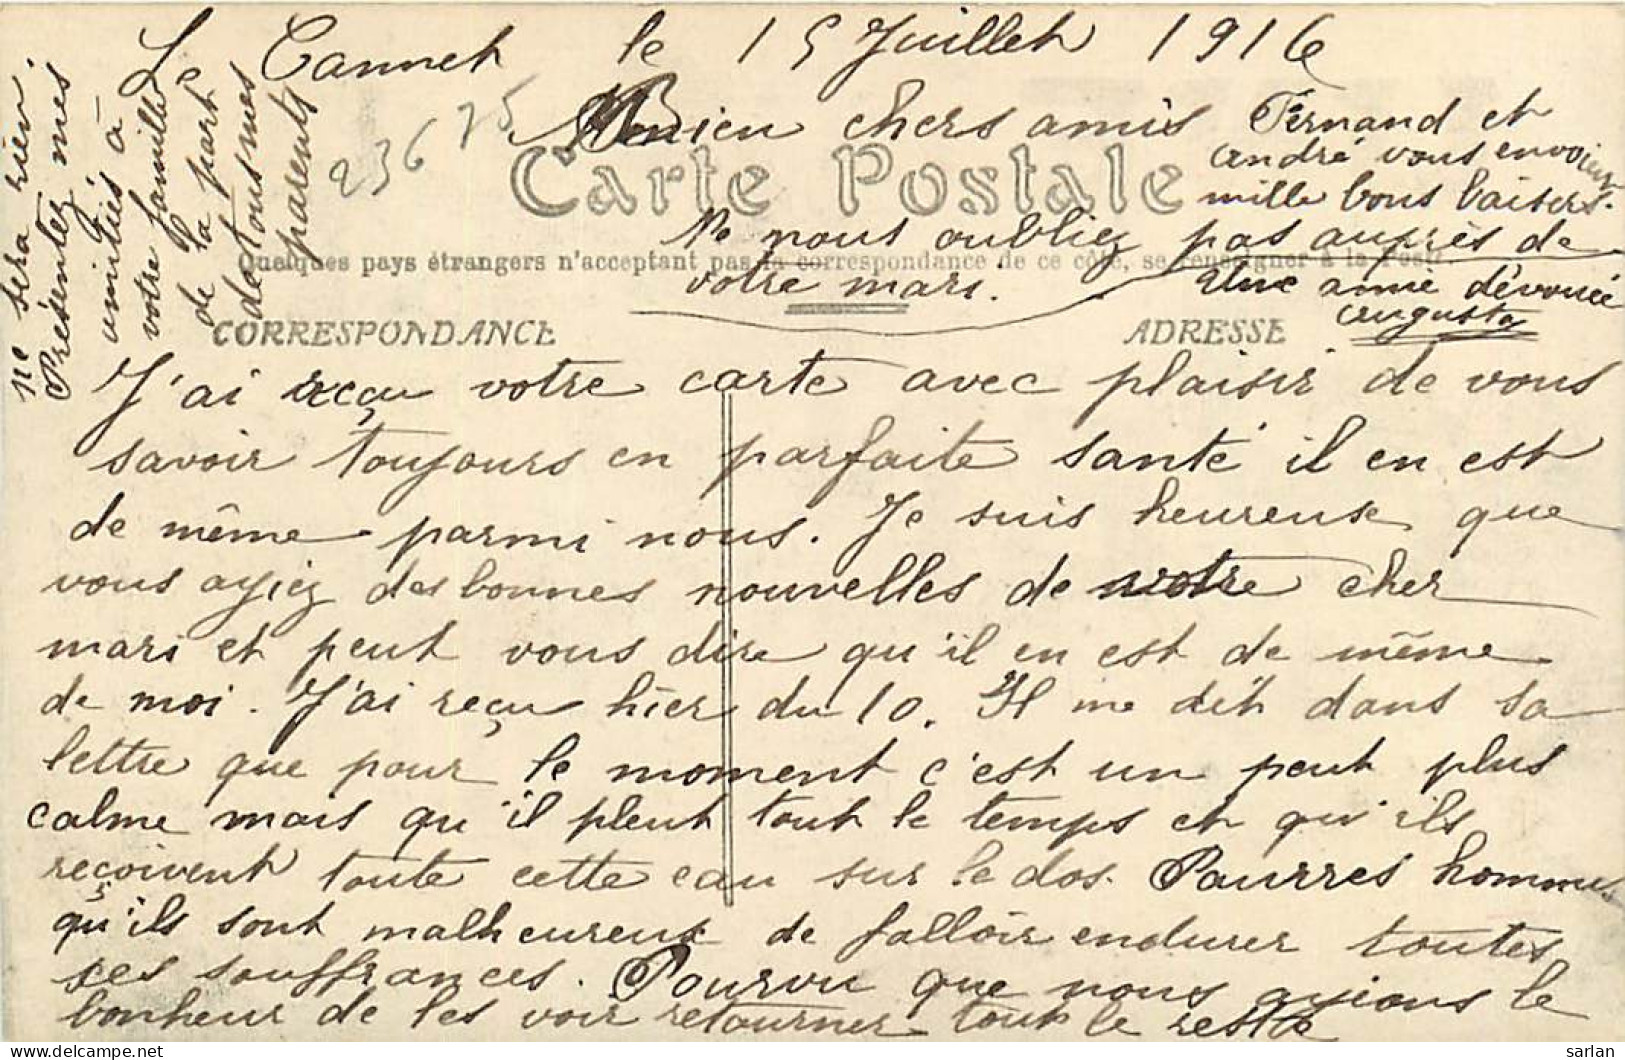 Le Cannet le 15 Juillet 1916
23675
Bien chers amis
Carte Postale
Quelques pays étrangers n'acceptent pas la correspondance de ce côté, se renseigner à la Poste.
CORRESPONDANCE
ADRESSE
J'ai reçu votre carte avec plaisir de vous
savoir toujours en parfaite santé il en est
de même parmi nous. Je suis heureuse que
vous ayiez des bonnes nouvelles de votre cher
mari et peut vous dire qu'il en est de même
de moi. J'ai reçu hier du 10. Il me dit dans sa
lettre que pour le moment c'est un peut plus
calme mais qu'il pleut tout le temps et qu'ils
reçoivent toute cette eau sur le dos. Pauvres hommes
qu'ils sont malheureux de falloir endurer toutes
ses souffrances. Pourvu que nous ayions le
bonheur de les voir retourner tout le reste
ne sera rien.
Présentez mes
amitiés à
votre famille
de la part
de tous mes
parents
Fernand et
André vous envoient
mille bons baisers.
Ne nous oubliez pas auprès de
votre mari.
Une amie dévouée
Augusta
sarlan